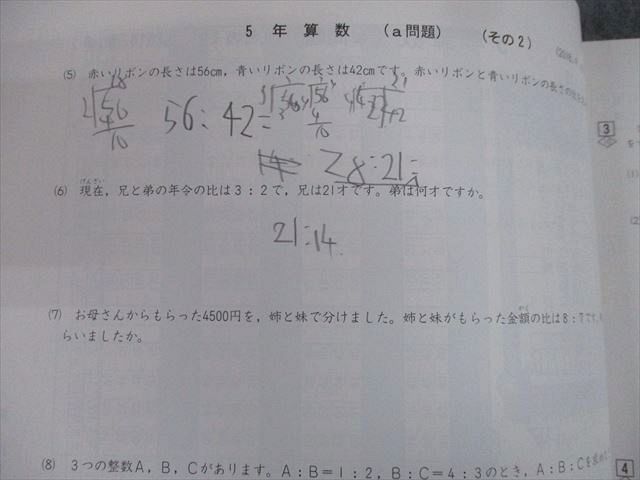 5 年 算 数 (a問題) (その2)
(5) 赤いリボンの長さは56cm，青いリボンの長さは42cmです。赤いリボンと青いリボンの長さの
56:42=
28:21=
げんざい
(6) 現在，兄と弟の年令の比は3：2で，兄は21才です。弟は何才ですか。
21:14
(7) お母さんからもらった4500円を，姉と妹で分けました。姉と妹がもらった金額の比は8：7です。
らいましたか。
(8) 3つの整数A，B，Cがあります。A：B＝1：2，B：C＝4：3のとき，A：B：Cを求め
3
(1)
(2)
4